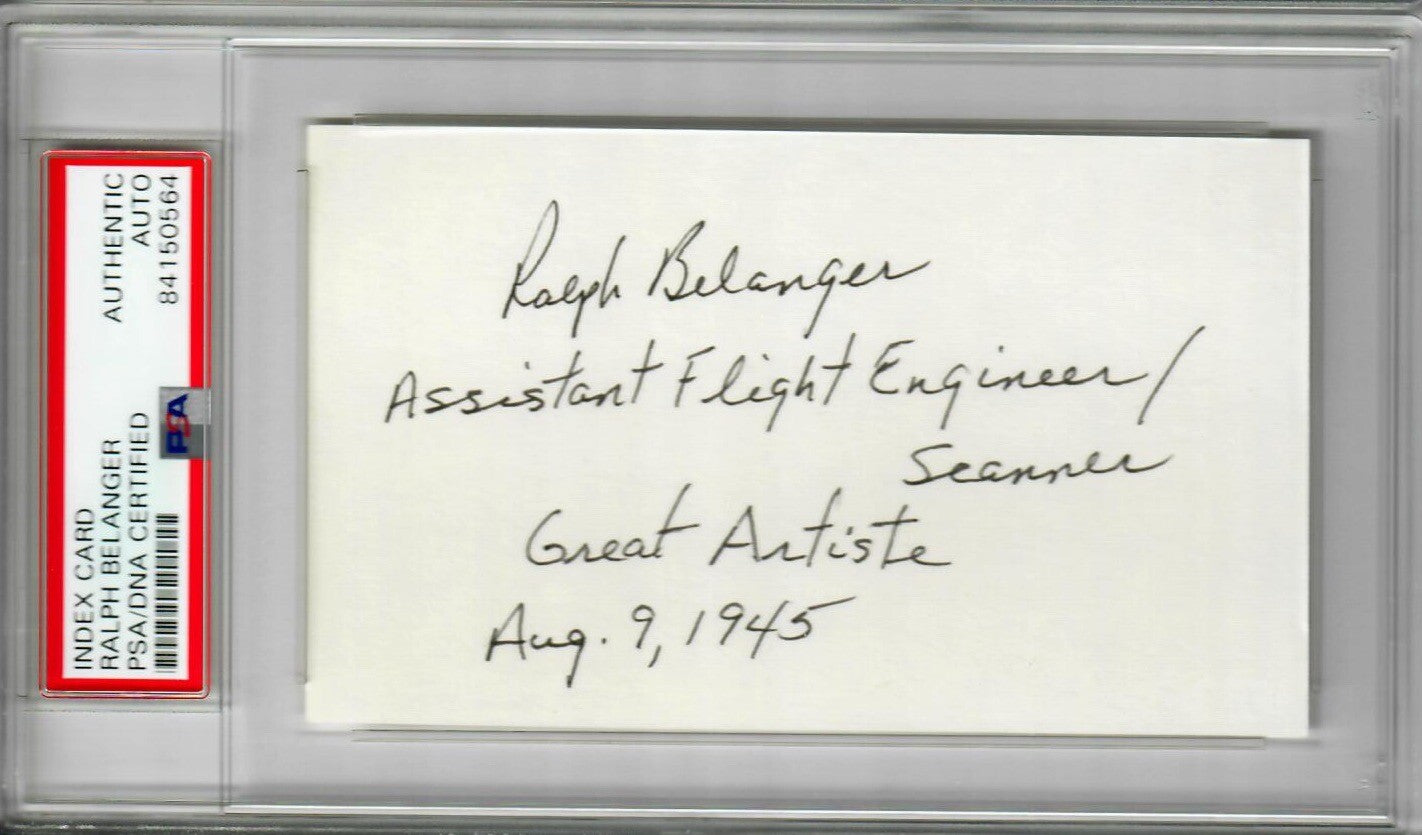 INDEX CARD
RALPH BELANGER
PSA/DNA CERTIFIED
AUTHENTIC
AUTO
84150564
PSA
Ralph Belanger
Assistant Flight Engineer/
Scanner
Great Artiste
Aug. 9, 1945